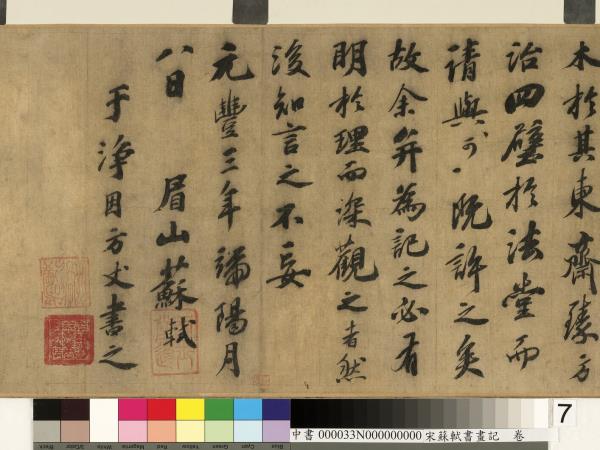 木於其東齋臻方
治四壁於法堂而
請與可一既許之矣
故余幷為記之必有
明於理而深觀之者然
後知言之不妄
元豐三年端陽月
八日 眉山蘇軾
于淨因方丈書之
中書 000033N000000000 宋蘇軾書畫記 卷
7
Black
3/Color
White
Magenta
Red
Yellow
Green
Cyan
Blue